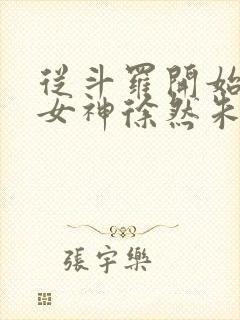 從斗羅開始
女神徐然朱
張宇樂